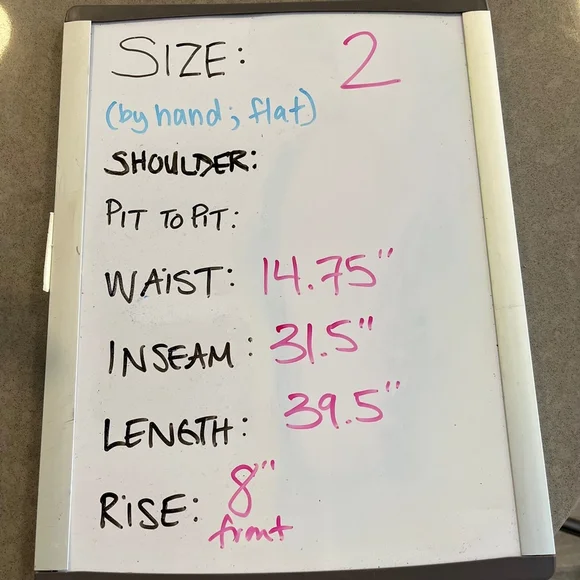 SIZE: 2
(by hand; flat)
SHOULDER:
PIT TO PIT:
WAIST: 14.75"
INSEAM: 31.5"
LENGTH: 39.5"
RISE: 8"
front